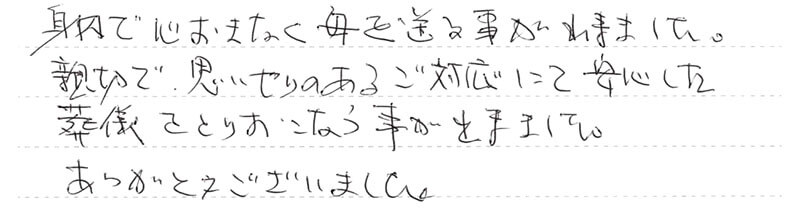 身内で心おきなく母を送る事が出来ました。
親切で、思いやりのあるご対応にて安心した
葬儀をとりおこなう事が出来ました。
ありがとうございました。